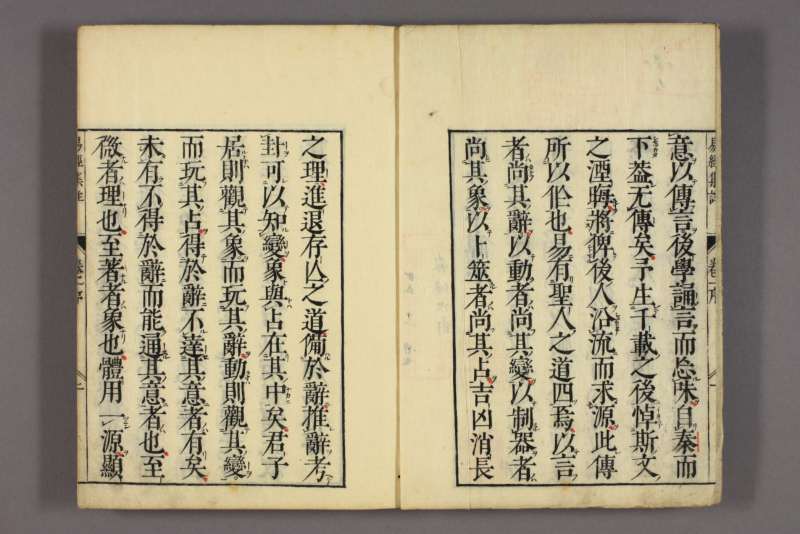 易經集註 卷一序
意以傳言後學誦言而忘味自秦而
下葢无傳矣予生千載之後悼斯文
之湮晦將俾後人沿流而求源此傳
所以作也易有聖人之道四焉以言
者尚其辭以動者尚其變以制器者
尚其象以卜筮者尚其占吉凶消長
之理進退存亾之道備於辭推辭考
卦可以知變象與占在其中矣君子
居則觀其象而玩其辭動則觀其變
而玩其占得於辭不達其意者有矣
未有不得於辭而能通其意者也至
微者理也至著者象也體用一源顯
易經集註 卷一序